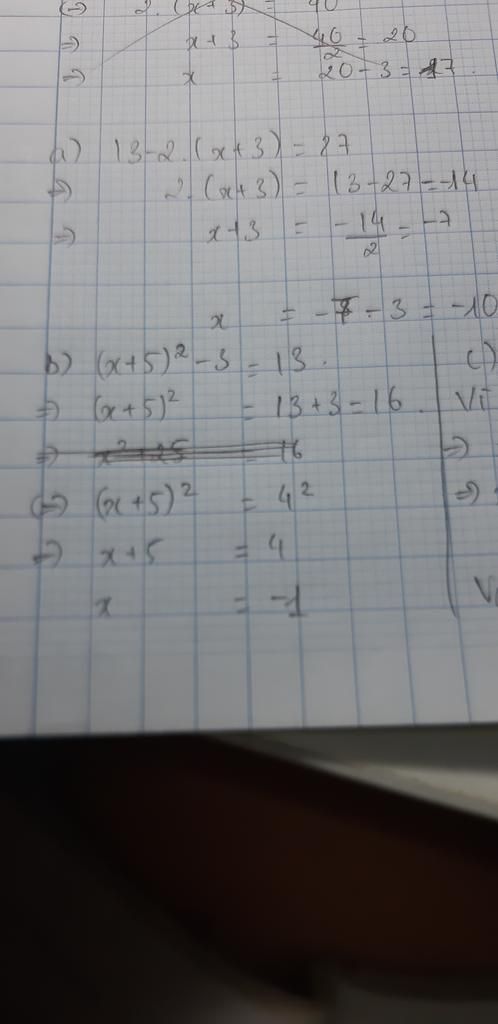 (=> 2. (x+3) = 40
=> x+3 = 40/2 = 20
=> x = 20-3 = 17.
a) 13-2.(x+3) = 27
=> 2.(x+3) = 13-27 = -14
=> x+3 = -14/2 = -7
x = -7-3 = -10
b) (x+5)² - 3 = 13.
=> (x+5)² = 13+3 = 16.
=> x²+25 = 16
(=> (x+5)² = 4²
=> x+5 = 4
x = -1
c)
Vì
=>
=>